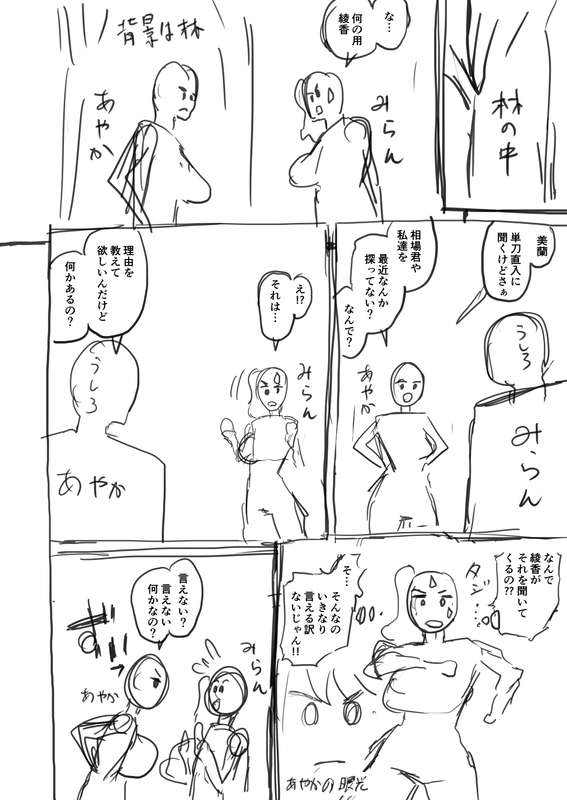 林の中
な…
何の用
綾香
みらん
背景は林
あやか
美蘭
単刀直入に
聞くけどさぁ
相場君や
私達を
最近なんか
探ってない?
なんで?
うしろ
みらん
あやか
え!?
それは…
みらん
理由を
教えて
欲しいんだけど
何かあるの?
うしろ
あやか
なんで
綾香が
それを聞いて
くるの??
タジ…
そ…
そんなの
いきなり
言える訳
ないじゃん!!
あやかの眼光
言えない?
言えない
何かなの?
みらん
あやか